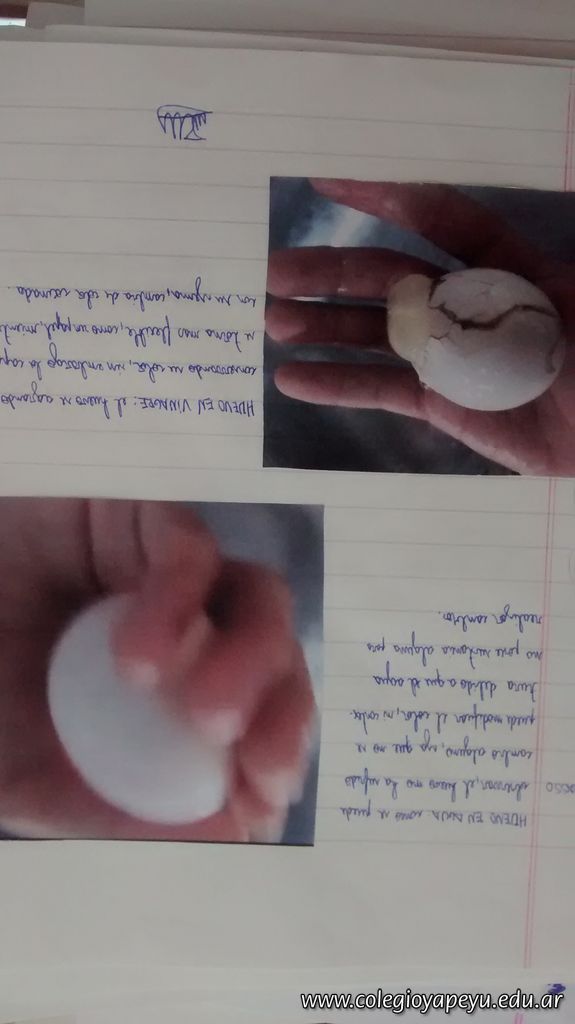 HUEVO EN AGUA como se puede
observar, el huevo no ha sufrido
cambio alguno, ya que no se
puede modificar el color, ni corte-
debido a que el agua
no posee sustancia alguna para
realizar cambios.
HUEVO EN VINAGRE: el huevo se agrandó
conservando su color, sin embargo la
se torna mas flexible, como un papel,
con su yema, cambia de color
www.colegioyapeyu.edu.ar